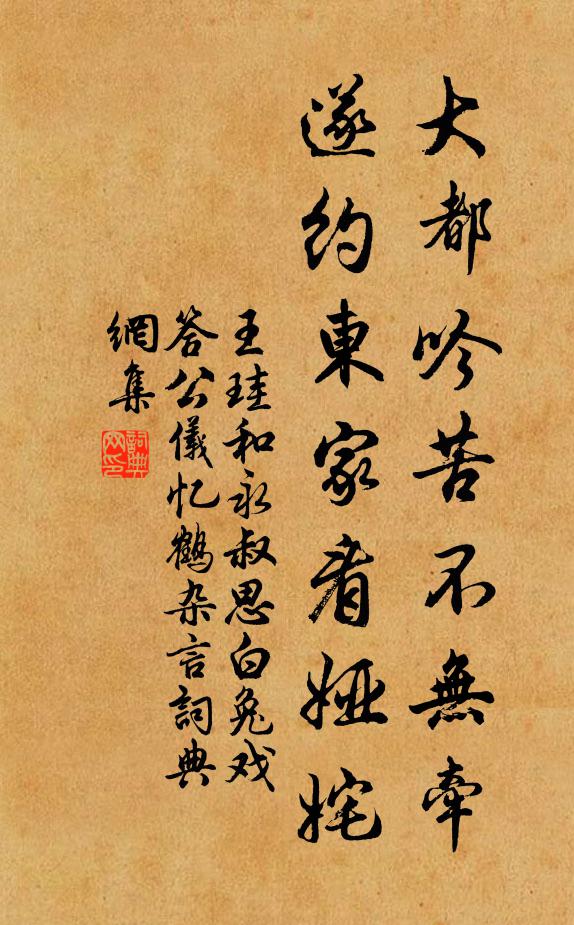 大都吟苦不無牽
遂約東家看婭姹
王珪和永叔思白兔戏
答公儀忆鶴杂言詞典
網集
詞典
网印